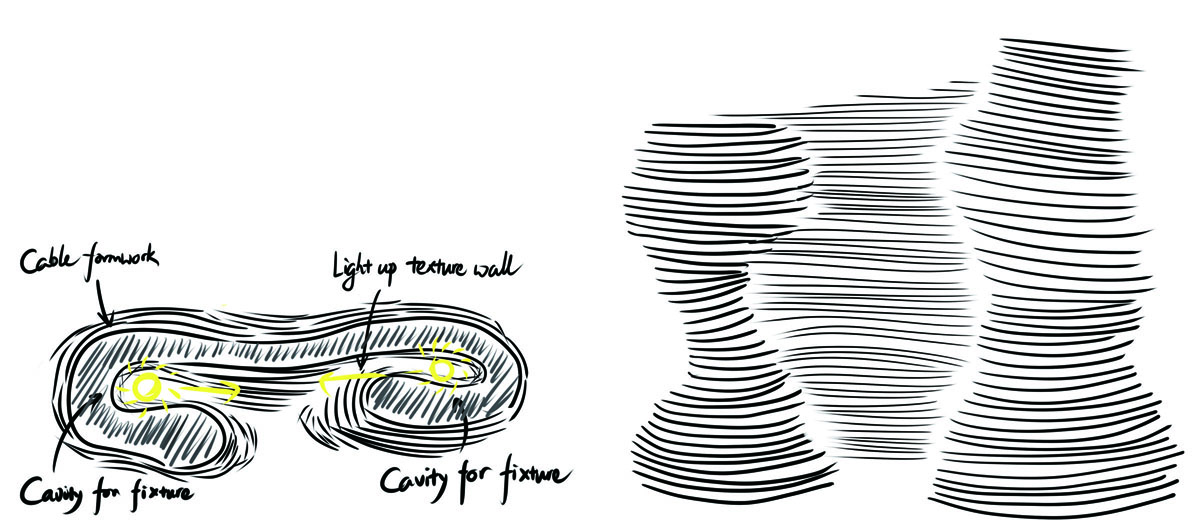 Cable formwork
Light up texture wall
Cavity for fixture
Cavity for fixture